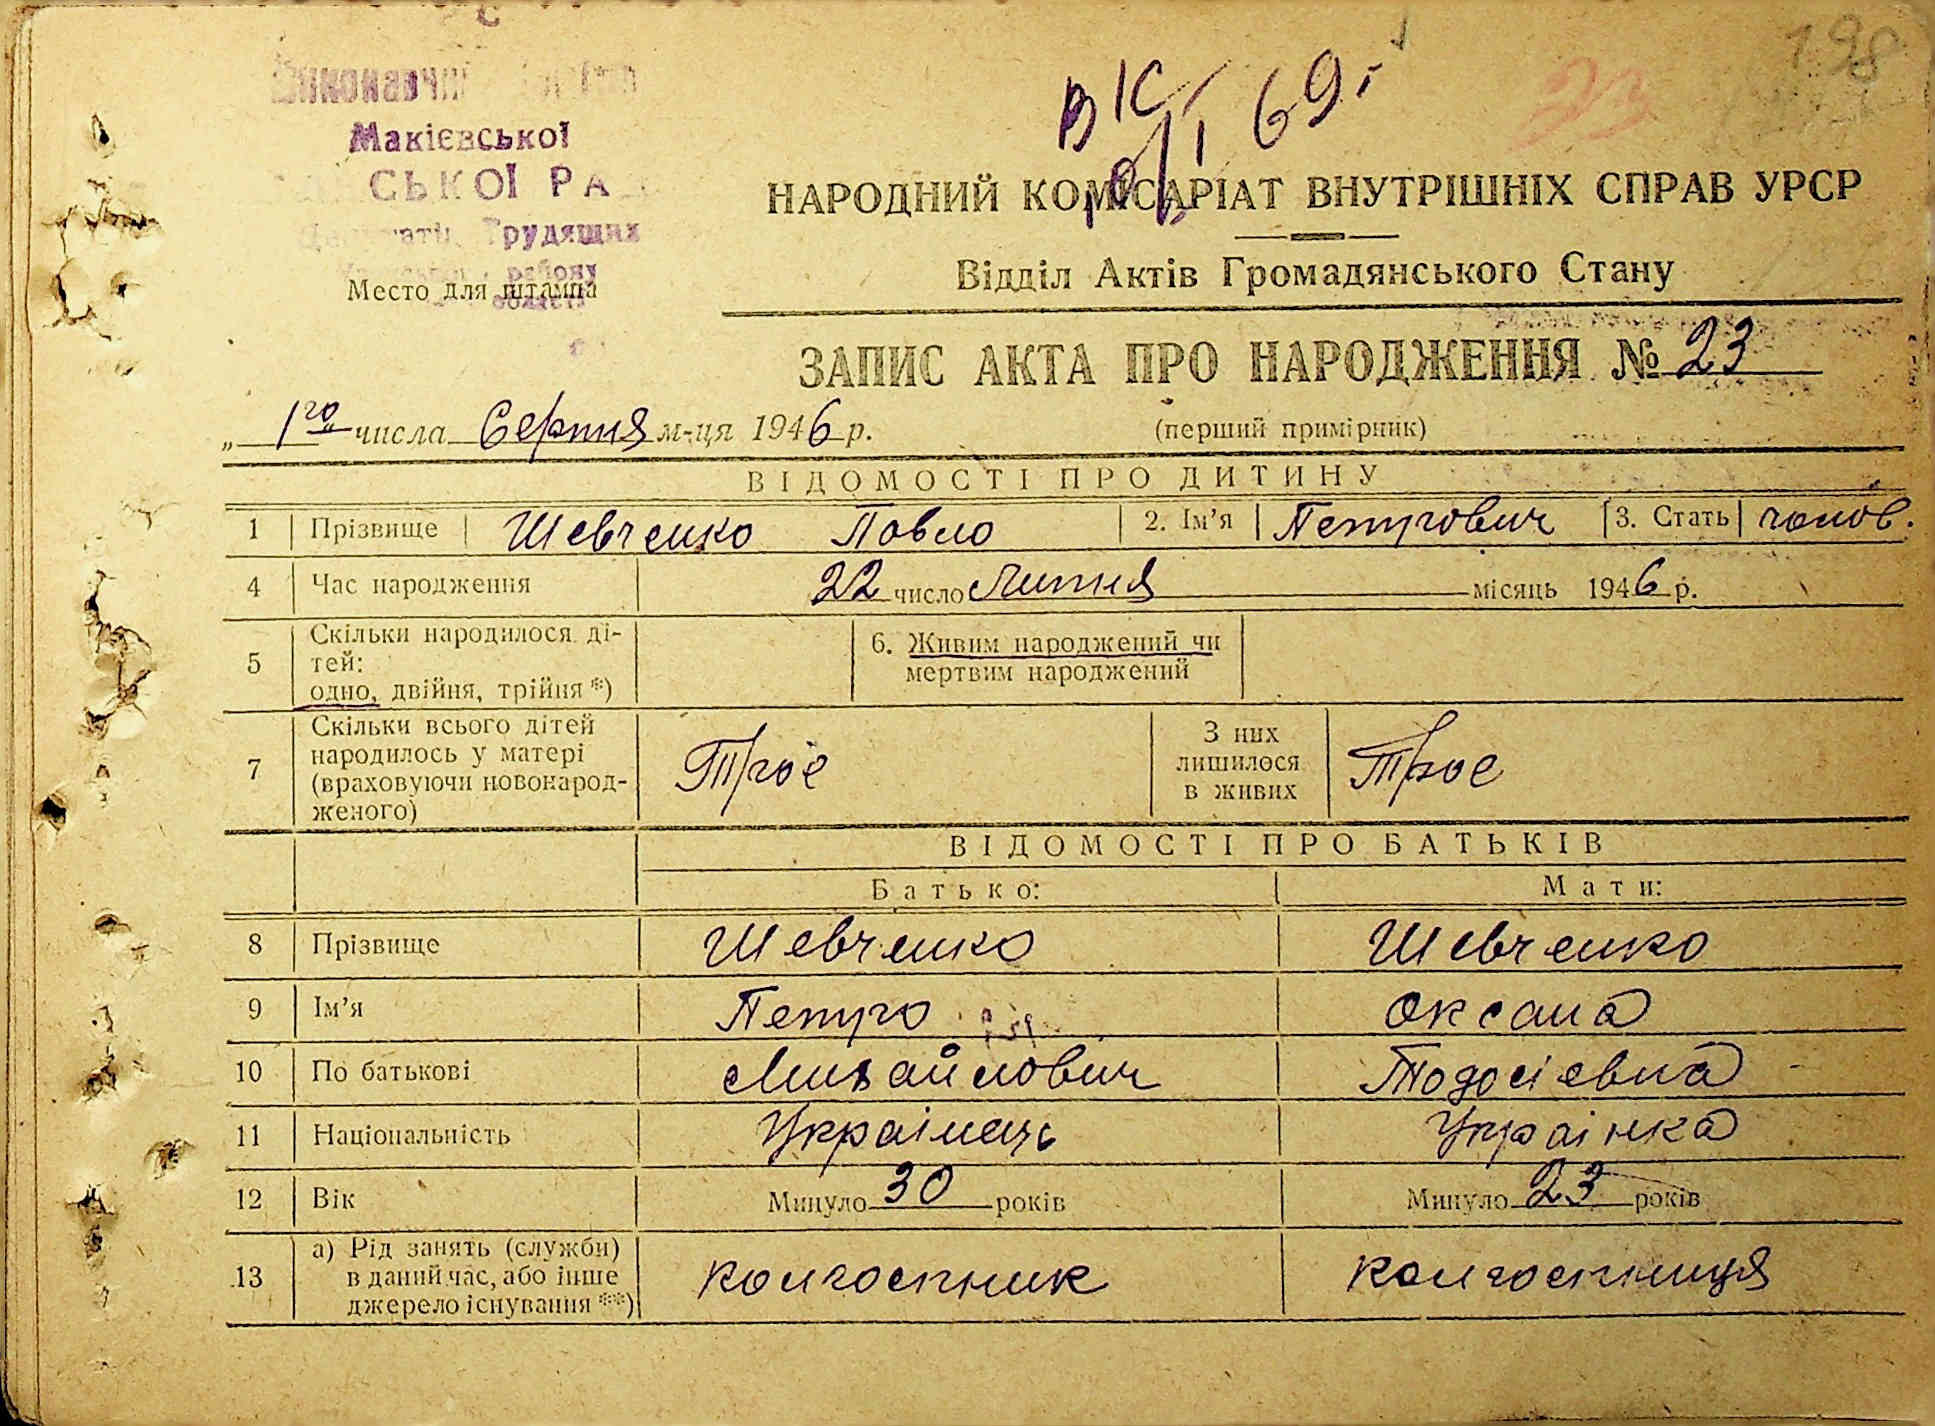 198
23
ВІС 69.
Макієвської
СЬКОЇ РА
Трудящих
району
Место для штампа
області
НАРОДНИЙ КОМІСАРІАТ ВНУТРІШНІХ СПРАВ УРСР
Відділ Актів Громадянського Стану
ЗАПИС АКТА ПРО НАРОДЖЕННЯ № 23
„ 1го “ числа Серпня м-ця 1946 р. (перший примірник)
ВІДОМОСТІ ПРО ДИТИНУ
1 Прізвище Шевченко Павло 2. Ім’я Петрович 3. Стать чолов.
4 Час народження 22 число Липня місяць 1946 р.
5 Скільки народилося ді-
тей:
одно, двійня, трійня *)
6. Живим народжений чи
мертвим народжений
7 Скільки всього дітей
народилось у матері
(враховуючи новонарод-
женого)
Троє
З них
лишилося
в живих
Троє
ВІДОМОСТІ ПРО БАТЬКІВ
Батько: Мати:
8 Прізвище Шевченко Шевченко
9 Ім’я Петро Оксана
10 По батькові Михайлович Тодосієвна
11 Національність Українець Українка
12 Вік Минуло 30 років Минуло 23 років
13 а) Рід занять (служби)
в даний час, або інше
джерело існування **)
колгоспник колгоспниця